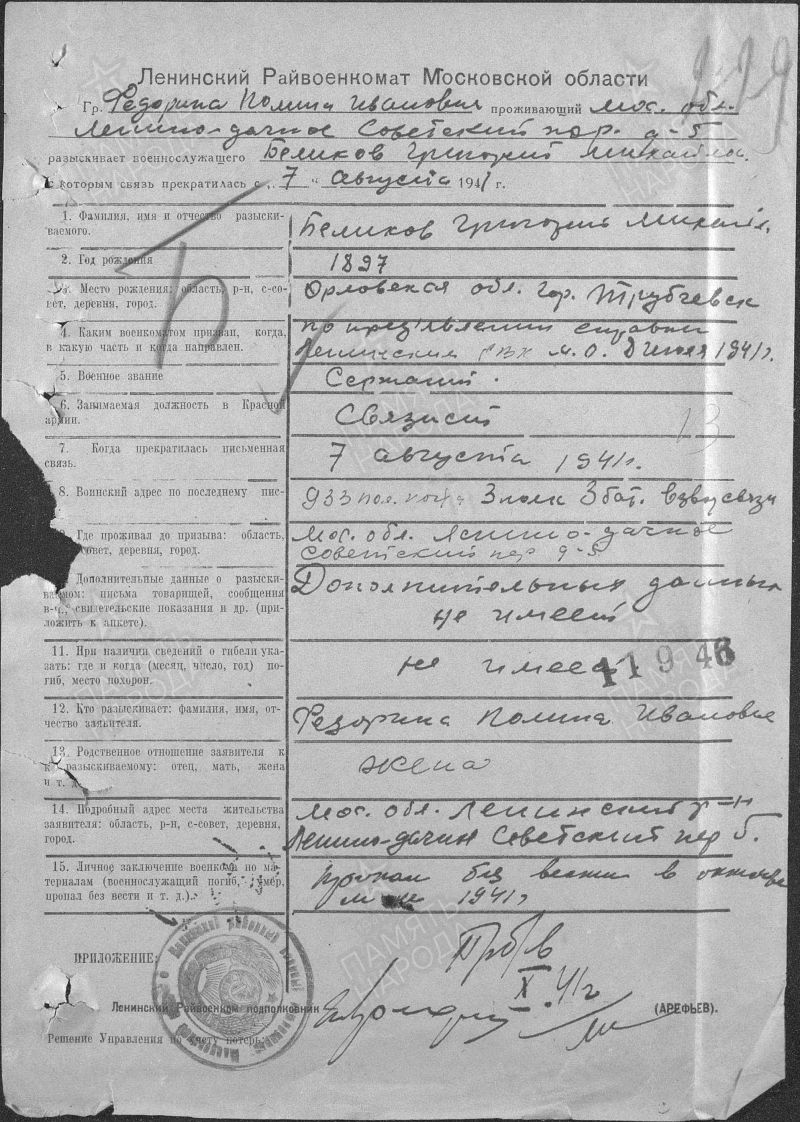 Ленинский Райвоенкомат Московской области
Гр. Федорина Полина Ивановна проживающий Мос. обл.
Ленино-дачное Советский пер. д-5
разыскивает военнослужащего Беликов Григорий Михайло.
с которым связь прекратилась с „ 7 " августа 1941 г.
1. Фамилия, имя и отчество разыски-
ваемого.
Беликов Григорий Михайл.
2. Год рождения
1897
3. Место рождения: область, р-н, с-со-
вет, деревня, город.
Орловская обл. гор. Трубчевск
4. Каким военкоматом призван, когда,
в какую часть и когда направлен.
по предъявлении справки
Ленинским РВК М.О. 1941г.
5. Военное звание
Сержант.
6. Занимаемая должность в Красной
армии.
Связист
13
7. Когда прекратилась письменная
связь.
7 августа 1941г.
8. Воинский адрес по последнему пис-
933 пол. почта 3 полк 3 бат. взвод связи
Где проживал до призыва: область,
совет, деревня, город.
Мос. обл. Ленино-дачное
Советский пер д-5
Дополнительные данные о разыски-
ваемом: письма товарищей, сообщения
в-ч, свидетельские показания и др. (при-
ложить к анкете).
Дополнительных данных
не имеет
11. При наличии сведений о гибели ука-
зать: где и когда (месяц, число, год) по-
гиб, место похорон.
не имеет
11 9 46
12. Кто разыскивает: фамилия, имя, от-
чество заявителя.
Федорина Полина Ивановна
13. Родственное отношение заявителя к
к разыскиваемому: отец, мать, жена
и т. д.
жена
14. Подробный адрес места жительства
заявителя: область, р-н, с-совет, деревня,
город.
Мос. обл. Ленинский р-н
Ленино-дачн Советский пер 5.
15. Личное заключение военкома по ма-
териалам (военнослужащий погиб, умер,
пропал без вести и т. д.).
пропал без вести в октябре
м-це 1941г
ПРИЛОЖЕНИЕ:
Прб/в
X.41г
Ленинский Райвоенком подполковник
(АРЕФЬЕВ).
Решение Управления по учету потерь:
ПАМЯТЬ
НАРОДА